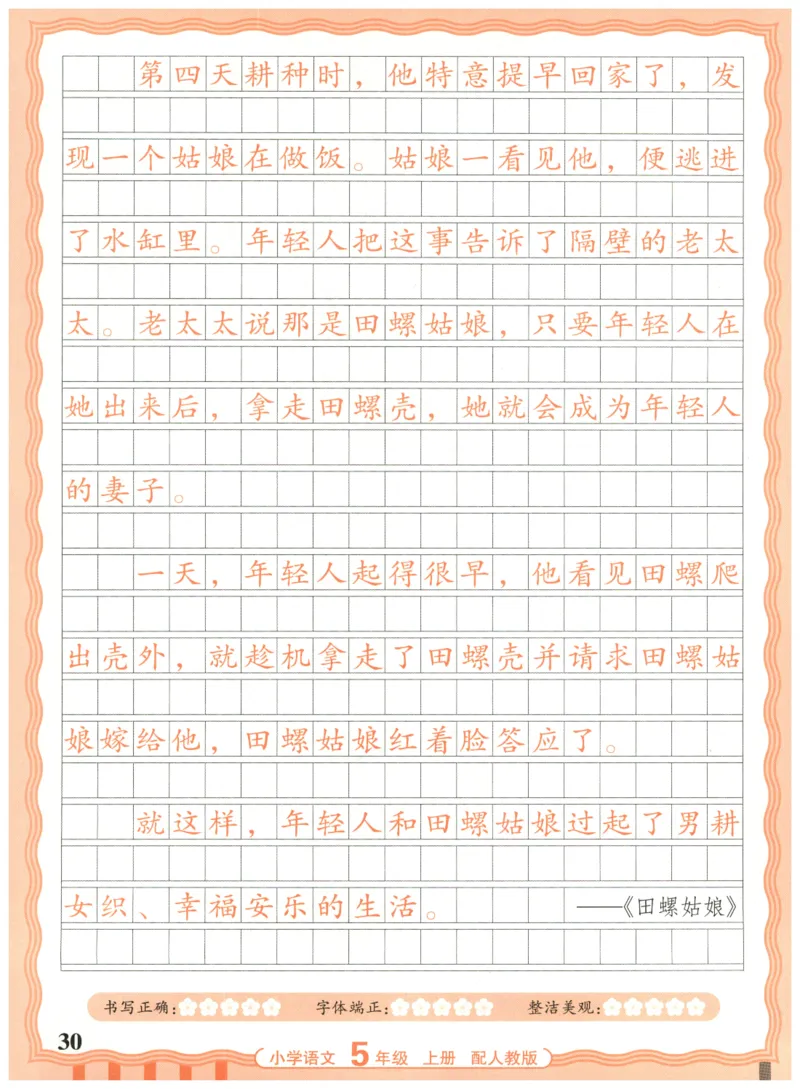 第四天耕种时，他特意提早回家了，发
现一个姑娘在做饭。姑娘一看见他，便逃进
了水缸里。年轻人把这事告诉了隔壁的老太
太。老太太说那是田螺姑娘，只要年轻人在
她出来后，拿走田螺壳，她就会成为年轻人
的妻子。
一天，年轻人起得很早，他看见田螺爬
出壳外，就趁机拿走了田螺壳并请求田螺姑
娘嫁给他，田螺姑娘红着脸答应了。
就这样，年轻人和田螺姑娘过起了男耕
女织、幸福安乐的生活。 ——《田螺姑娘》
书写正确： 字体端正： 整洁美观：
30
小学语文 5年级 上册 配人教版